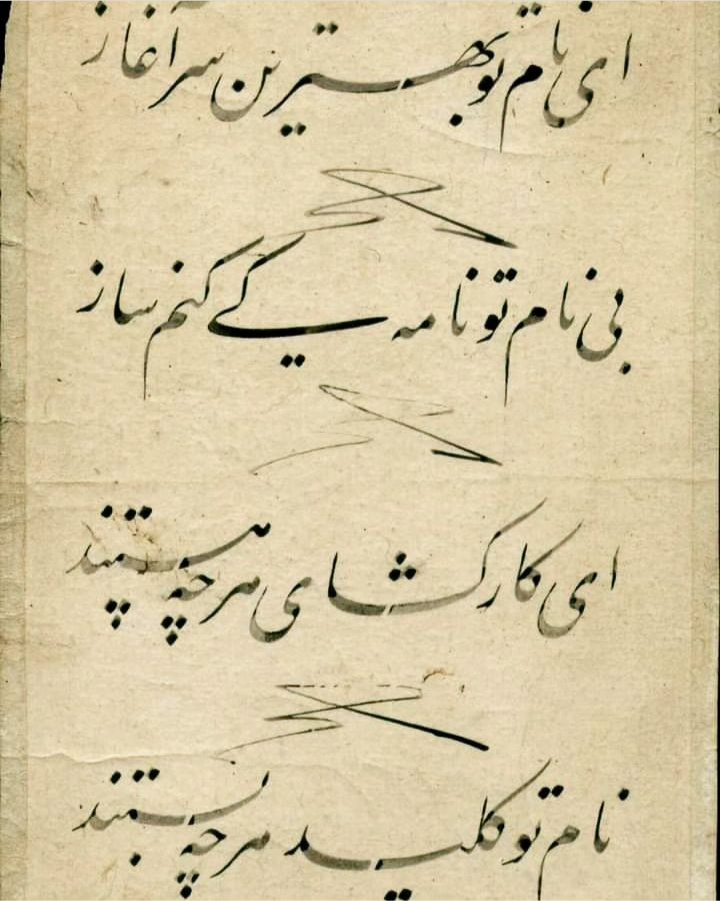 ای نام تو بهترین سرآغاز
بی نام تو نامه کی کنم ساز
ای کارگشای هرچه هستند
نام تو کلید هرچه بستند